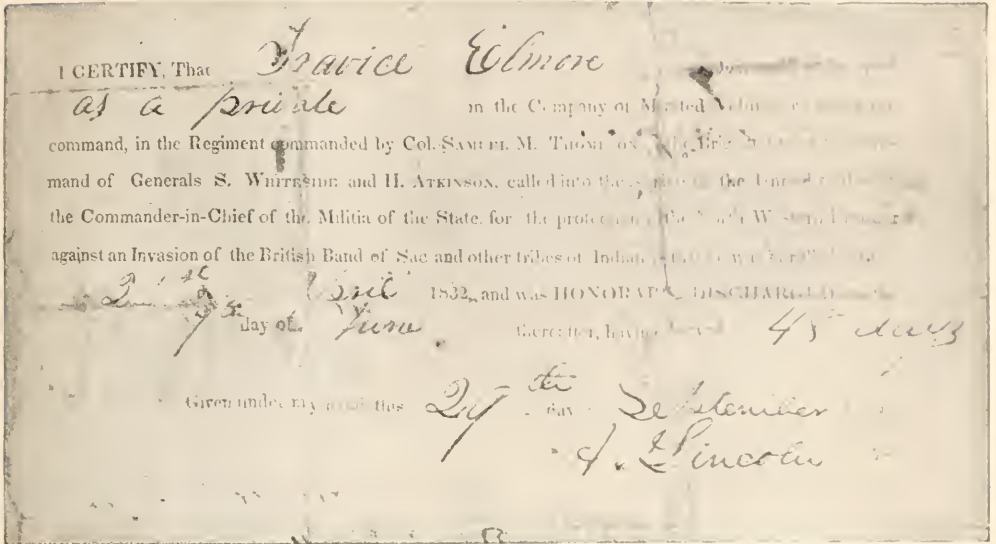 I CERTIFY, That Travice Elmore
as a private in the Company of Mounted
command, in the Regiment commanded by Col. SAMUEL M. THOMPSON,
mand of Generals S. WHITESIDE and H. ATKINSON, called into the the
the Commander-in-Chief of the Militia of the State, for the protection the North Western
against an Invasion of the British Band of Sac and other tribes of Indians
21st April 1832, and was HONORABLY DISCHARGED
7th day of June thereafter, having served 45 days
Given under my this 27th day September
A. Lincoln